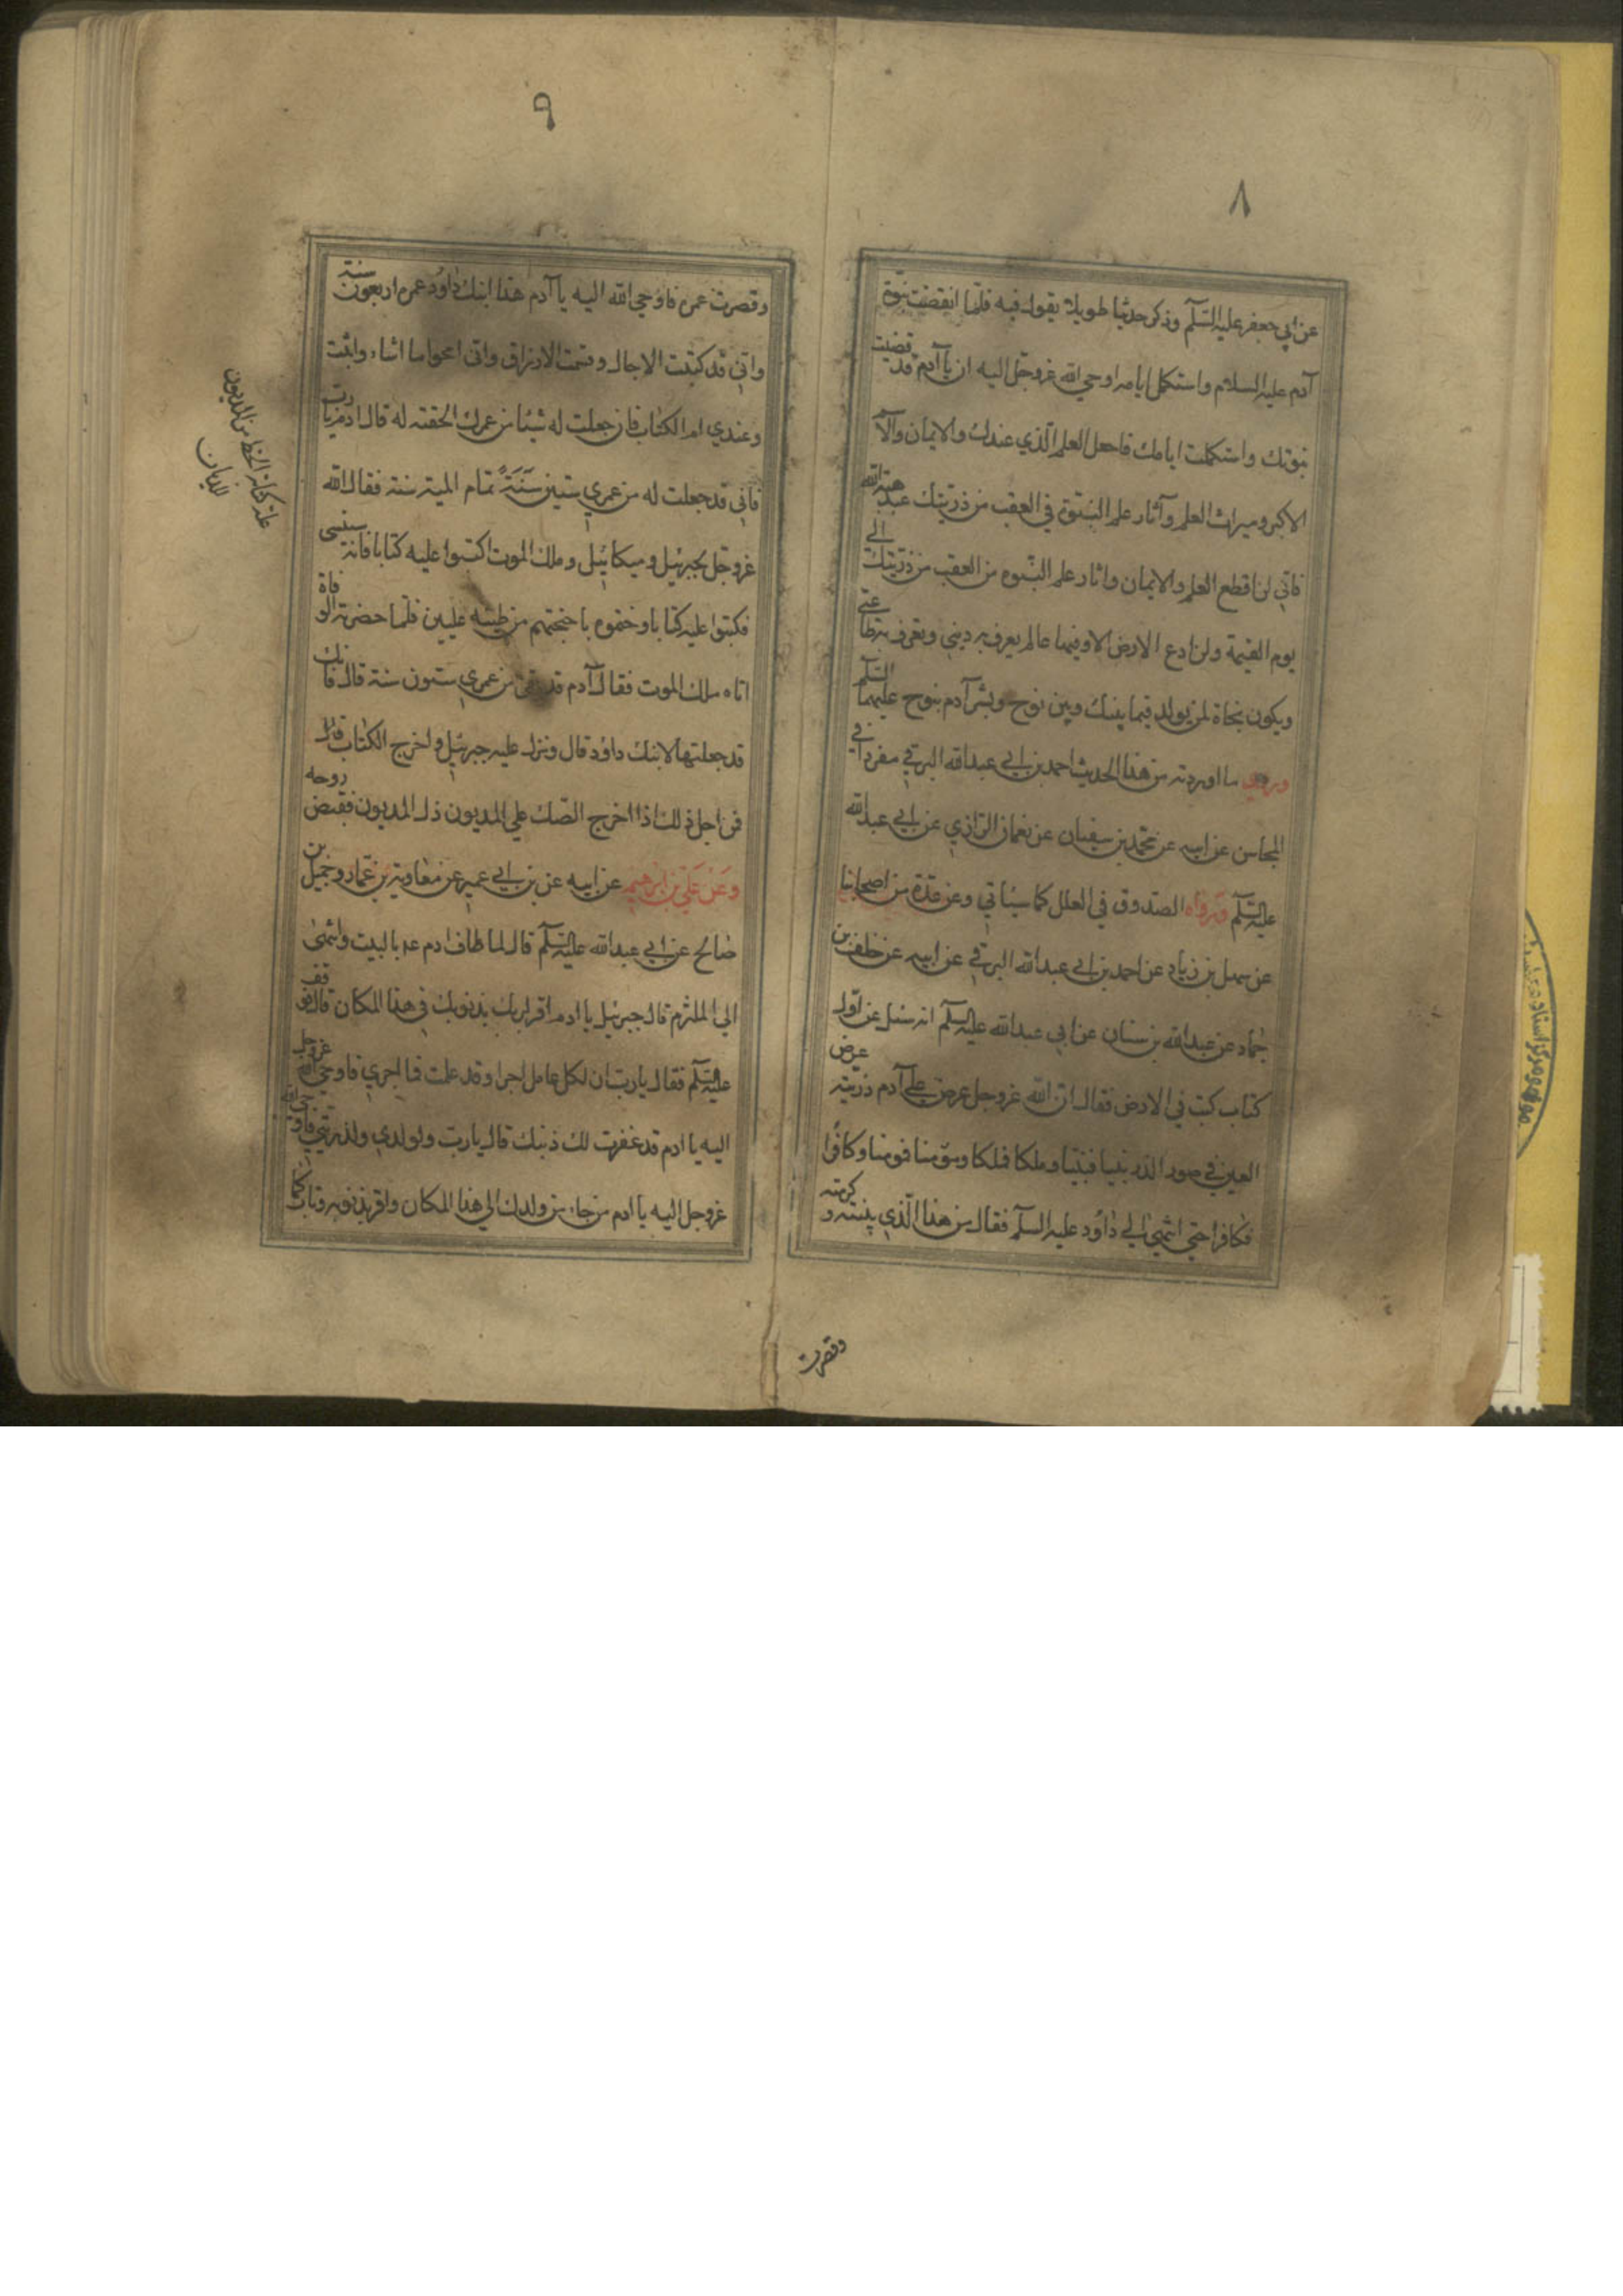 ٨
عن ابي جعفر عليه السلم وذكر حديثا طويلا يقول فيه فلما انقضت نبوة
آدم عليه السلام واستكمل ايامه اوحي الله عزوجل اليه ان يا آدم قد قضيت
نبوتك واستكملت ايامك فاجعل العلم الذي عندك والايمان والاسم
الاكبر وميراث العلم وآثار علم النبوة في العقب من ذريتك عند هبة الله
فاني لن اقطع العلم والايمان واثار علم النبوه من العقب من ذريتك الي
يوم القيمة ولن ادع الارض الا وفيها عالم يعرف به ديني ويعرف به طاعتي
ويكون نجاة لمن يولد فيما بينك وبين نوح وبشر آدم بنوح عليهما السلم
وروي ما اوردته من هذا الحديث احمد بن ابي عبدالله البرقي مفردا في
المحاسن عن ابيه عن محمد بن سفيان عن نعمان الرازي عن ابي عبدالله
عليه السلم ورواه الصدوق في العلل كما سياتي وعن عدة من اصحابنا
عن سهل بن زياد عن احمد بن ابي عبدالله البرقي عن ابيه عن خلف بن
حماد عن عبدالله بن سنان عن ابي عبدالله عليه السلم انه سئل عن اول
كتاب كتب في الارض فقال ان الله عزوجل عرض علي آدم ذريته عرض
العين في صور الذر نبيا فنبيا وملكا فملكا ومؤمنا فمومنا وكافرا
فكافرا حتي انتهي الي داود عليه السلم فقال من هذا الذي نبيته وكرمته
وقصرت
٩
وقصرت عمره فاوحي الله اليه يا آدم هذا ابنك داود عمره اربعون سنة
واني قد كتبت الاجال وقسمت الارزاق واني امحو ما اشاء واثبت
وعندي ام الكتاب فان جعلت له شيئا من عمرك الحقته له قال ادم يا رب
فاني قد جعلت له من عمري ستين سَنَةً تمام المية سنة فقال الله
عزوجل لجبرئيل وميكائيل وملك الموت اكتبوا عليه كتابا فانه سينسى
فكتبوا عليه كتابا وختموه باجنحتهم من طينه عليين فلما حضرته الوفاة
اتاه ملك الموت فقال آدم قد بقي من عمري ستون سنة قال فانك
قد جعلتها لابنك داود قال ونزل عليه جبرئيل واخرج الكتاب فقال
فمن اجل ذلك اذا اخرج الصك علي المديون ذل المديون فقبض روحه
وعن علي بن ابرهيم عن ابيه عن بن ابي عمير عن معاوية بن عمار وجميل بن
صالح عن ابي عبدالله عليه السلم قال لما طاف ادم ع بالبيت وانتهى
الي الملتزم قال جبرئيل يا ادم اقر لربك بذنوبك في هذا المكان قال فوقف
عليه السلم فقال يارب ان لكل عامل اجرا وقد عملت فما اجري فاوحي الله عزوجل
اليه يا ادم قد غفرت لك ذنبك قال يارب ولولدي ولذريتي فاوحي الله
عزوجل اليه يا ادم من جاء من ولدك الي هذا المكان واقر بذنوبه وتاب كما
من المديون
للبيان